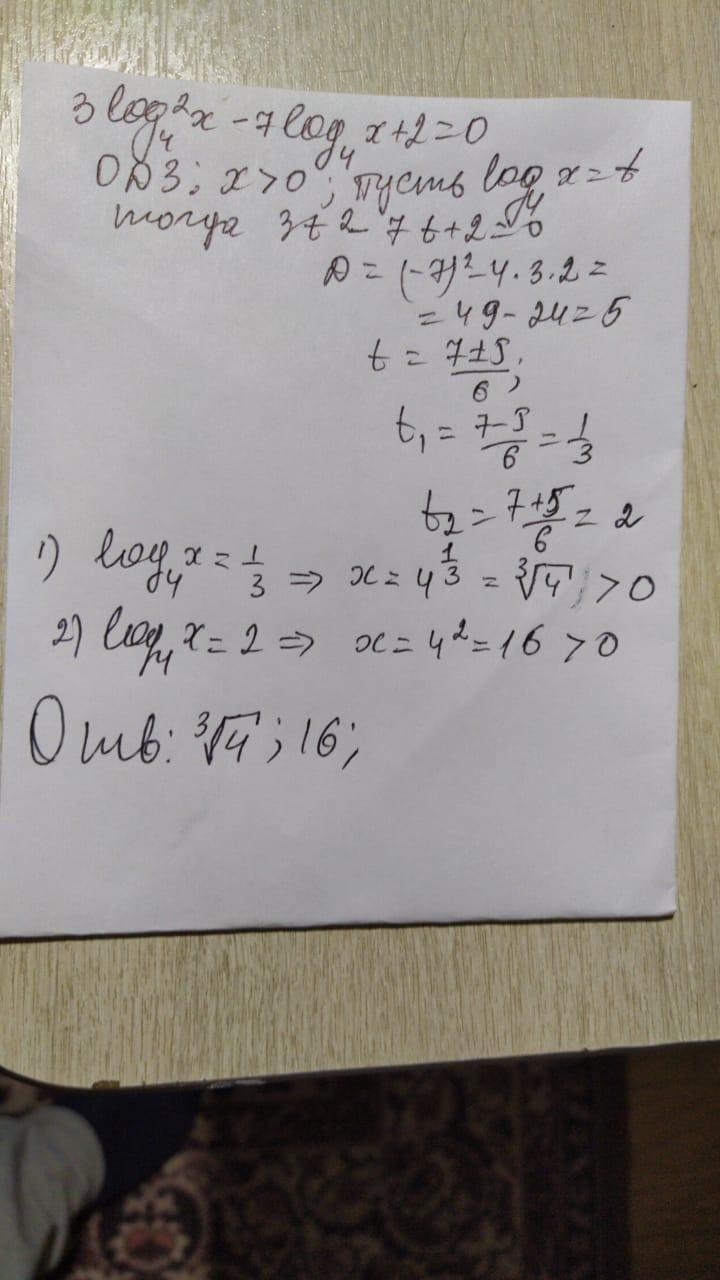 3 log₄²x - 7 log₄ x + 2 = 0
ОДЗ: x > 0; пусть log₄ x = t
тогда 3t² - 7t + 2 = 0
D = (-7)² - 4 · 3 · 2 =
= 49 - 24 = 5
t = (7 ± 5)/6;
t₁ = (7 - 5)/6 = 1/3
t₂ = (7 + 5)/6 = 2
1) log₄ x = 1/3 ⇒ x = 4^(1/3) = ∛4 > 0
2) log₄ x = 2 ⇒ x = 4² = 16 > 0
Отв: ∛4; 16;